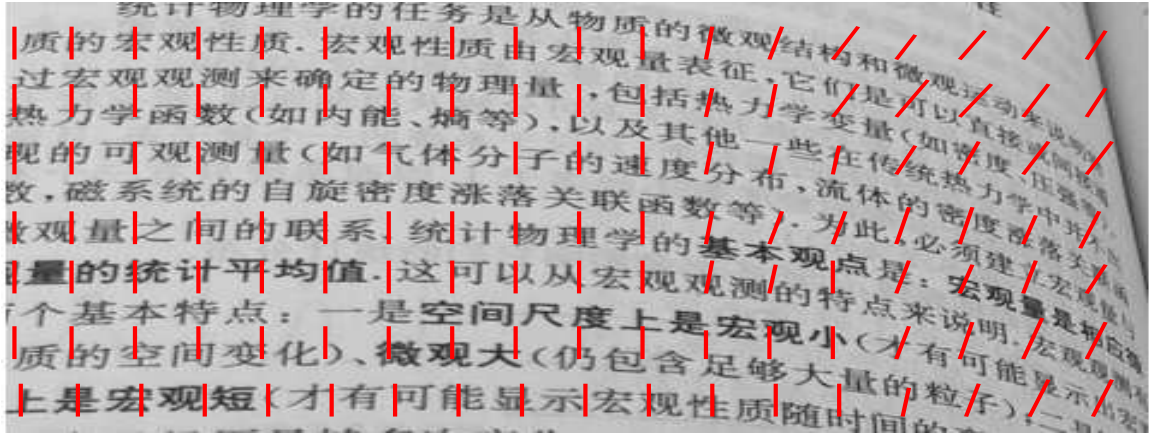 统计物理学的任务是从物质的微观结构和微观运动来说明
质的宏观性质.宏观性质由宏观量表征,它们是可以直接或间接
过宏观观测来确定的物理量,包括热力学变量(如密度、压强
热力学函数(如内能、熵等),以及其他一些在传统热力学中
现的可观测量(如气体分子的速度分布,流体的密度涨落关
数,磁系统的自旋密度涨落关联函数等).为此,必须建立宏观
微观量之间的联系.统计物理学的基本观点是:宏观量是相应微
量的统计平均值.这可以从宏观观测的特点来说明.宏观观测
个基本特点:一是空间尺度上是宏观小(才有可能显示出宏
质的空间变化)、微观大(仍包含足够大量的粒子);二
上是宏观短(才有可能显示宏观性质随时间的